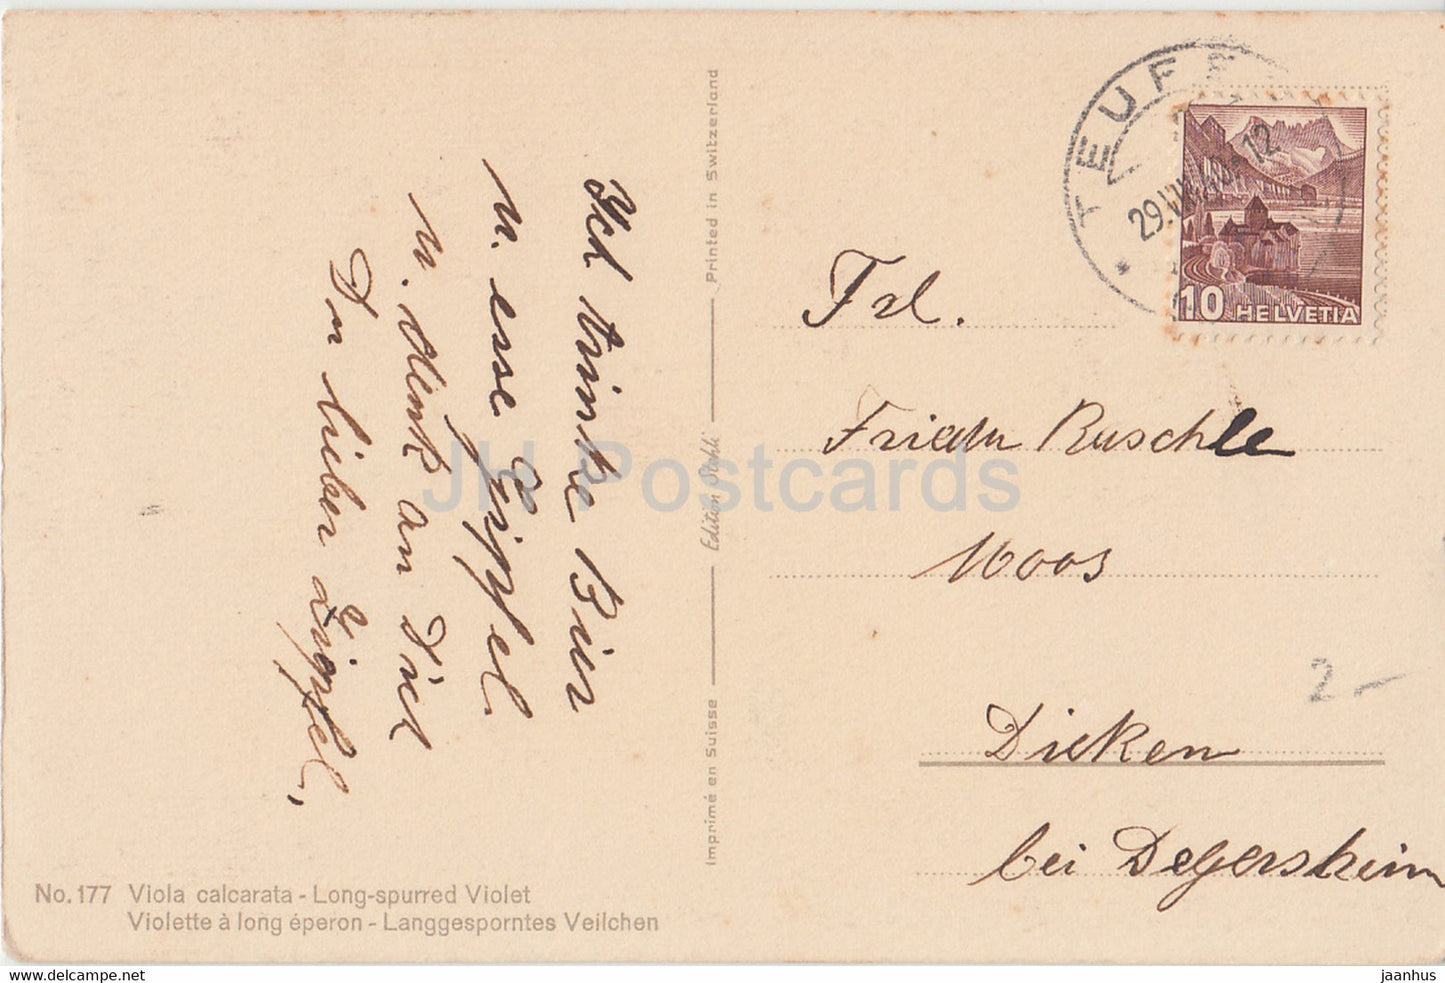 Ich trinke Bier
u. esse Gipfel
u. denk an Dich
Du lieber Zipfel,
Imprimé en Suisse
Edition Stehli
Printed in Switzerland
No. 177 Viola calcarata - Long-spurred Violet
Violette à long éperon - Langgesporntes Veilchen
TEUFE
29.VIII. 12
10 HELVETIA
Frl.
Frieda Ruschle
Moos
Dicken
bei Degersheim
2 -
JH Postcards
https://www.delcampe.net
jaanhus